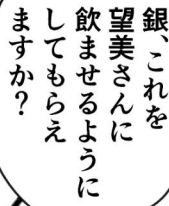 銀、これを
望美さんに
飲ませるように
してもらえ
ますか?